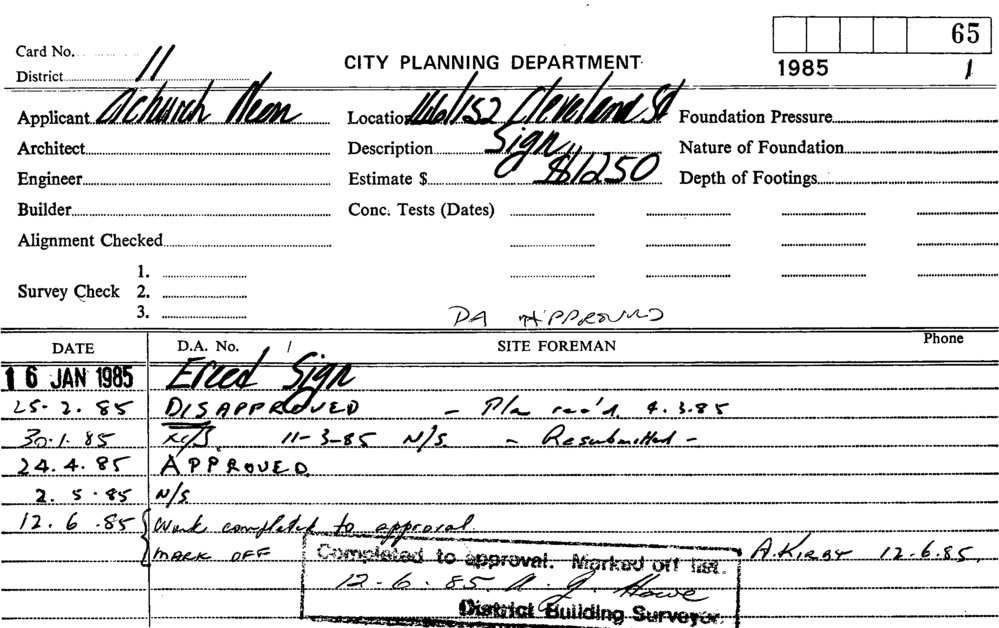 65
Card No.
CITY PLANNING DEPARTMENT
1985 1
District 11
Applicant Achurch Neon Location 146/152 Cleveland St Foundation Pressure
Architect Description Sign Nature of Foundation
Engineer Estimate $ $1250 Depth of Footings
Builder Conc. Tests (Dates)
Alignment Checked
1.
Survey Check 2.
3.
DA APPROVED
DATE D.A. No. / SITE FOREMAN Phone
16 JAN 1985 Erect Sign
25. 2. 85 DISAPPROVED – Plan rec'd. 4.3.85
30.1.85 11-3-85 N/S. – Resubmitted –
24.4.85 APPROVED
2. 5. 85 N/S
12. 6. 85 Work completed to approval.
MARK OFF A. KIRBY 12.6.85.
Completed to approval. Marked off list.
12-6-85. A. J. Howe
District Building Surveyor.